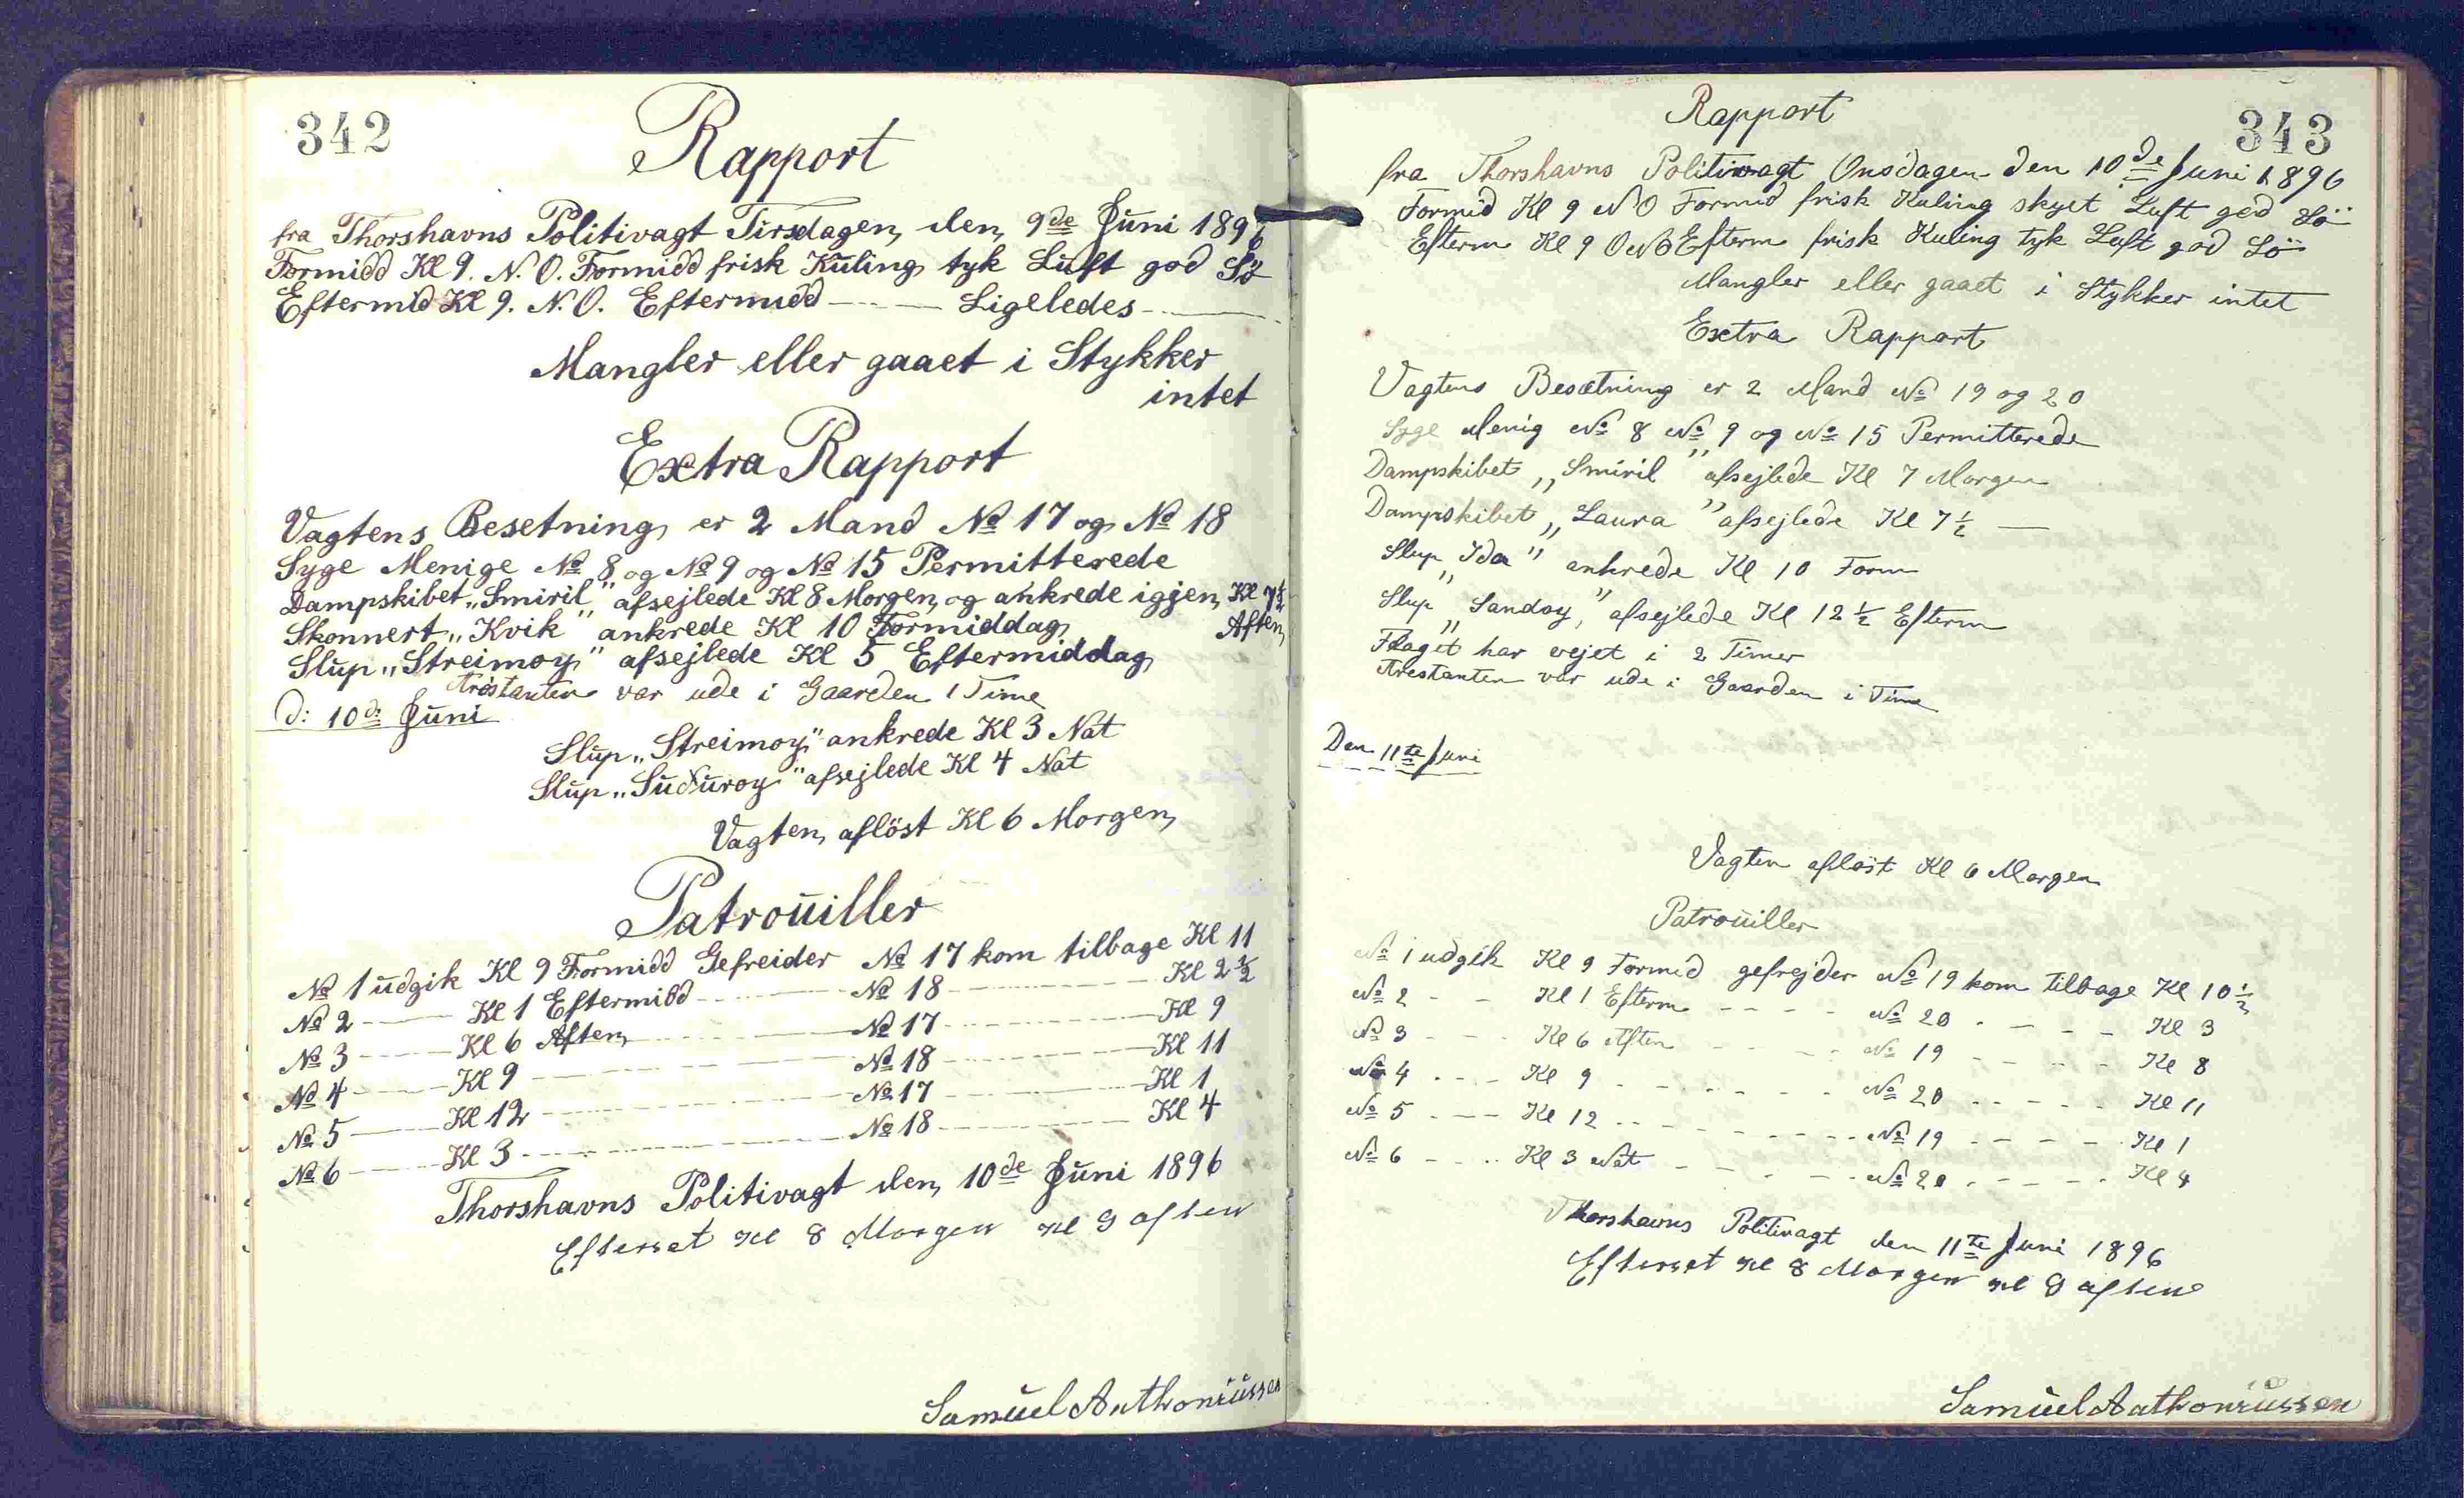 342
Rapport
fra Thorshavns Politivagt Tirsdagen, den, 9de Juni 1896
Formidd Kl 9. N. O. Formidd frisk Küling tyk Luft god Sö
Eftermid Kl 9. N. O. Eftermidd — — Ligeledes — —
Mangler eller gaaet i Stykker
intet
Extra Rapport
Vagtens Besetning er 2 Mand No 17 og No 18
Syge Menige No 8 og No 9 og No 15 Permitterede
Dampskibet „Smiril" afsejlede Kl 8 Morgen, og ankrede igjen, Kl 7½
Aften,
Skonnert „Kvik" ankrede Kl 10 Formiddag,
Slup „Streimoy" afsejlede Kl 5 Eftermiddag
Arestanten var ude i Gaarden 1 Time
d: 10de Juni
Slup „Streimoy" ankrede Kl 3 Nat
Slup „Suðuroy" afsejlede Kl 4 Nat
Vagten, aflöst Kl 6 Morgen,
Patroüiller
No 1 udgik Kl 9 Formidd Gefreider No 17 kom tilbage Kl 11
No 2 — Kl 1 Eftermidd — No 18 — Kl 2½
No 3 — Kl 6 Aften, — No 17 — Kl 9
No 4 — Kl 9 — No 18 — Kl 11
No 5 — Kl 12 — No 17 — Kl 1
No 6 — Kl 3 — No 18 — Kl 4
Thorshavns Politivagt den, 10de Juni 1896
Efterset Kl 8 Morgen Kl 9 aften
Samüel Anthoniüssen
343
Rapport
fra Thorshavns Politivagt Onsdagen den 10de Juni 1896
Formid Kl 9 N O Formid frisk Kuling skyet Luft god Sö
Efterm Kl 9 O N O Efterm frisk Kuling tyk Luft god Sö
Mangler eller gaaet i Stykker intet
Extra Rapport
Vagtens Besætning er 2 Mand No 19 og 20
Syge Menig No 8 No 9 og No 15 Permitterede
Dampskibet „Smiril" afsejlede Kl 7 Morgen
Dampskibet „Laura" afsejlede Kl 7½ —
Slup „Ida" ankrede Kl 10 Form
Slup „Sandoy" afsejlede Kl 12½ Efterm
Flaget har vejet i 2 Timer
Arestanten var ude i Gaarden i Time
Den 11te Juni
Vagten aflöst Kl 6 Morgen
Patroüiller
No 1 udgik Kl 9 Formid gefrejder No 19 kom tilbage Kl 10½
No 2 - - Kl 1 Efterm - - - - No 20 - - - - Kl 3
No 3 - - Kl 6 Aften - - - - No 19 - - - - Kl 8
No 4 - - - Kl 9 - - - - - - No 20 - - - - Kl 11
No 5 - - - Kl 12 - - - - - - No 19 - - - - Kl 1
No 6 - - - Kl 3 Nat - - - - No 20 - - - - Kl 4
Thorshavns Politivagt den 11te Juni 1896
Efterset Kl 8 Morgen Kl 9 aften
Samüel Anthoniüssen